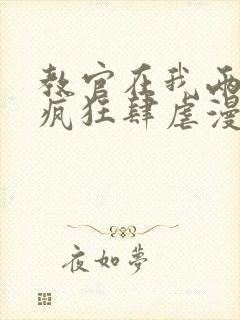 教官在我兩
疯狂肆虐漫
夜如夢